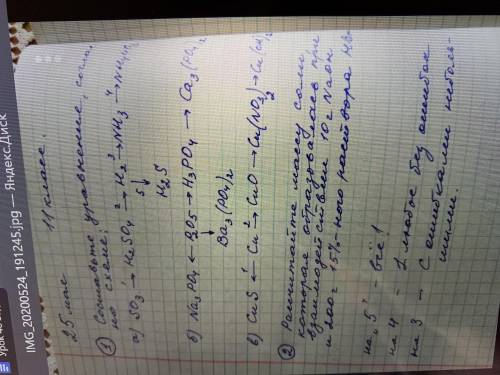 IMG_20200524_191245.jpg — Яндекс.Диск
25 мая 11 класс.
① Составьте уравнение, согл.
но схеме:
а) SO3 →1 H2SO4 →2 H2 →3 NH3 →4
5↓
H2S
б) Na3PO4 ← P2O5 → H3PO4 → Ca3(PO4)2
↓
Ba3(PO4)2
в) CuS ←1 Cu →2 CuO → Cu(NO3)2 → Cu(OH)2
② Рассчитайте массу соли,
которая образовалась при
взаимодействии 10 г NaOH
и 200 г 15%-ного раствора
на „5" - всё!
на 4 - 2 любое без ошибок
на 3 - с ошибками неболь-
шими.